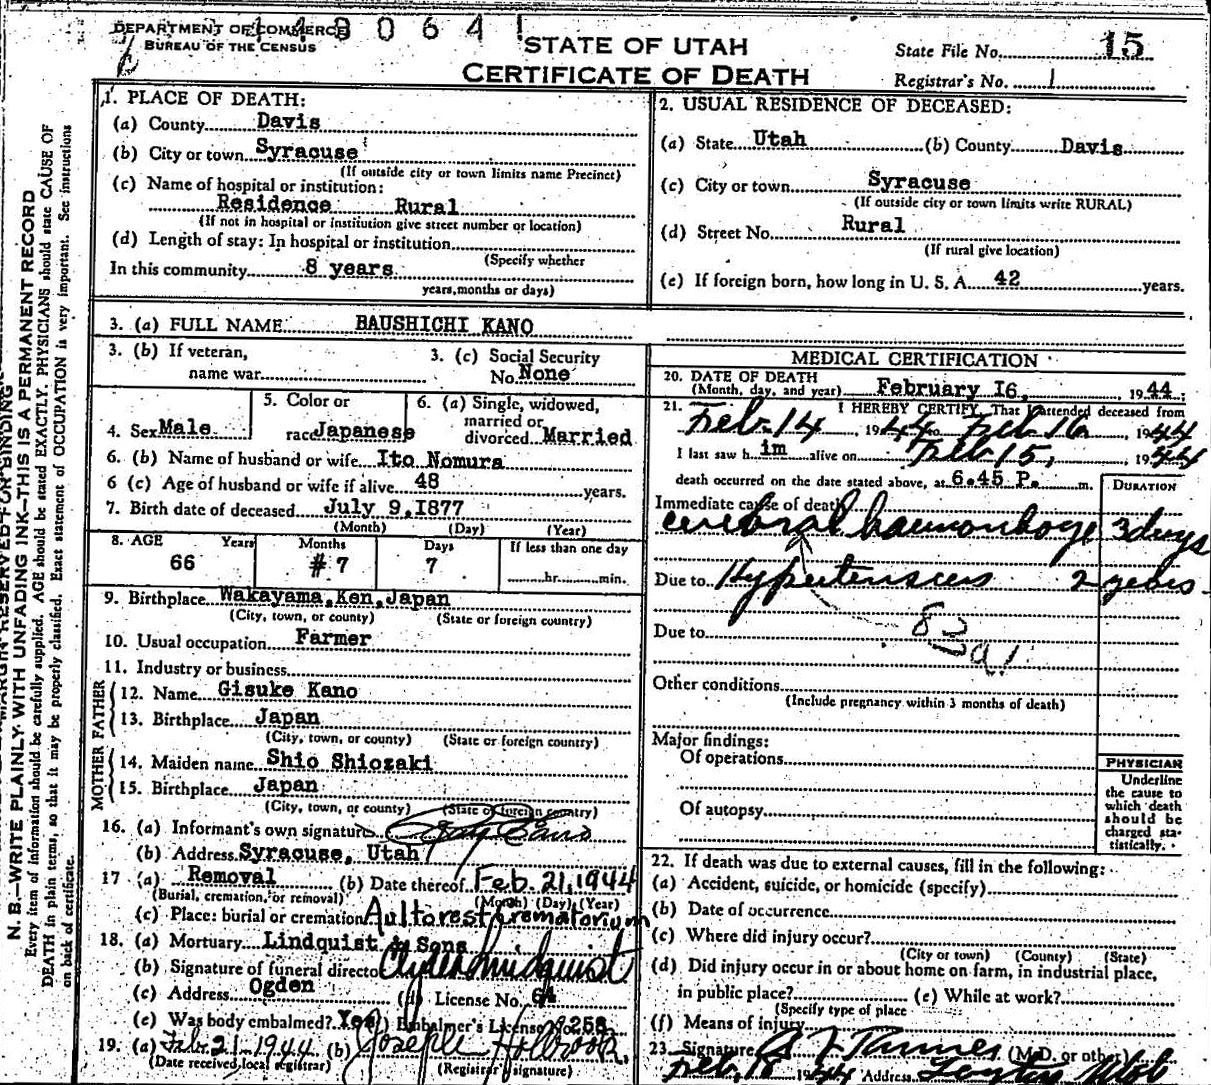 DEPARTMENT OF COMMERCE
BUREAU OF THE CENSUS
STATE OF UTAH
CERTIFICATE OF DEATH
State File No. 15
Registrar's No. 1
N. B.—WRITE PLAINLY WITH UNFADING INK—THIS IS A PERMANENT RECORD
Every item of information should be carefully supplied. AGE should be stated EXACTLY. PHYSICIANS should state CAUSE OF
DEATH in plain terms, so that it may be properly classified. Exact statement of OCCUPATION is very important. See instructions
on back of certificate.
1. PLACE OF DEATH:
(a) County Davis
(b) City or town Syracuse
(If outside city or town limits name Precinct)
(c) Name of hospital or institution:
Residence Rural
(If not in hospital or institution give street number or location)
(d) Length of stay: In hospital or institution
(Specify whether
In this community 8 years
years, months or days)
2. USUAL RESIDENCE OF DECEASED:
(a) State Utah (b) County Davis
(c) City or town Syracuse
(If outside city or town limits write RURAL)
(d) Street No. Rural
(If rural give location)
(e) If foreign born, how long in U. S. A. 42 years.
3. (a) FULL NAME BAUSHICHI KANO
3. (b) If veteran,
name war
3. (c) Social Security
No. None
4. Sex Male
5. Color or
race Japanese
6. (a) Single, widowed,
married or
divorced Married
6. (b) Name of husband or wife Ito Nomura
6 (c) Age of husband or wife if alive 48 years.
7. Birth date of deceased July 9, 1877
(Month) (Day) (Year)
8. AGE Years Months Days If less than one day
66 # 7 7 hr. min.
9. Birthplace Wakayama, Ken, Japan
(City, town, or county) (State or foreign country)
10. Usual occupation Farmer
11. Industry or business
FATHER
12. Name Gisuke Kano
13. Birthplace Japan
(City, town, or county) (State or foreign country)
MOTHER
14. Maiden name Shio Shiozaki
15. Birthplace Japan
(City, town, or county) (State or foreign country)
16. (a) Informant's own signature Kano
(b) Address Syracuse, Utah
17 (a) Removal (b) Date thereof Feb. 21, 1944
(Burial, cremation, or removal) (Month) (Day) (Year)
(c) Place: burial or cremation Aultorest Crematorium
18. (a) Mortuary Lindquist & Sons
(b) Signature of funeral director Clyde Lindquist
(c) Address Ogden (d) License No. 64
(e) Was body embalmed? Yes (f) Embalmer's License No. 258
19. (a) Feb 21-1944 (b) Joseph Holbrook
(Date received local registrar) (Registrar's signature)
MEDICAL CERTIFICATION
20. DATE OF DEATH
(Month, day, and year) February 16, 1944
21. I HEREBY CERTIFY, That I attended deceased from
Feb. 14, 1944 to Feb 16, 1944
I last saw him alive on Feb 15, 1944
death occurred on the date stated above, at 6.45 P. m.
DURATION
Immediate cause of death
cerebral haemorrhage 3 days
Due to Hypertension 2 years
Due to
83a1
Other conditions
(Include pregnancy within 3 months of death)
Major findings:
Of operations
Of autopsy
PHYSICIAN
Underline
the cause to
which death
should be
charged sta-
tistically.
22. If death was due to external causes, fill in the following:
(a) Accident, suicide, or homicide (specify)
(b) Date of occurrence
(c) Where did injury occur?
(City or town) (County) (State)
(d) Did injury occur in or about home on farm, in industrial place,
in public place? (e) While at work?
(Specify type of place
(f) Means of injury
23 Signature (M.D. or other)
Feb. 1944 Address Layton Utah